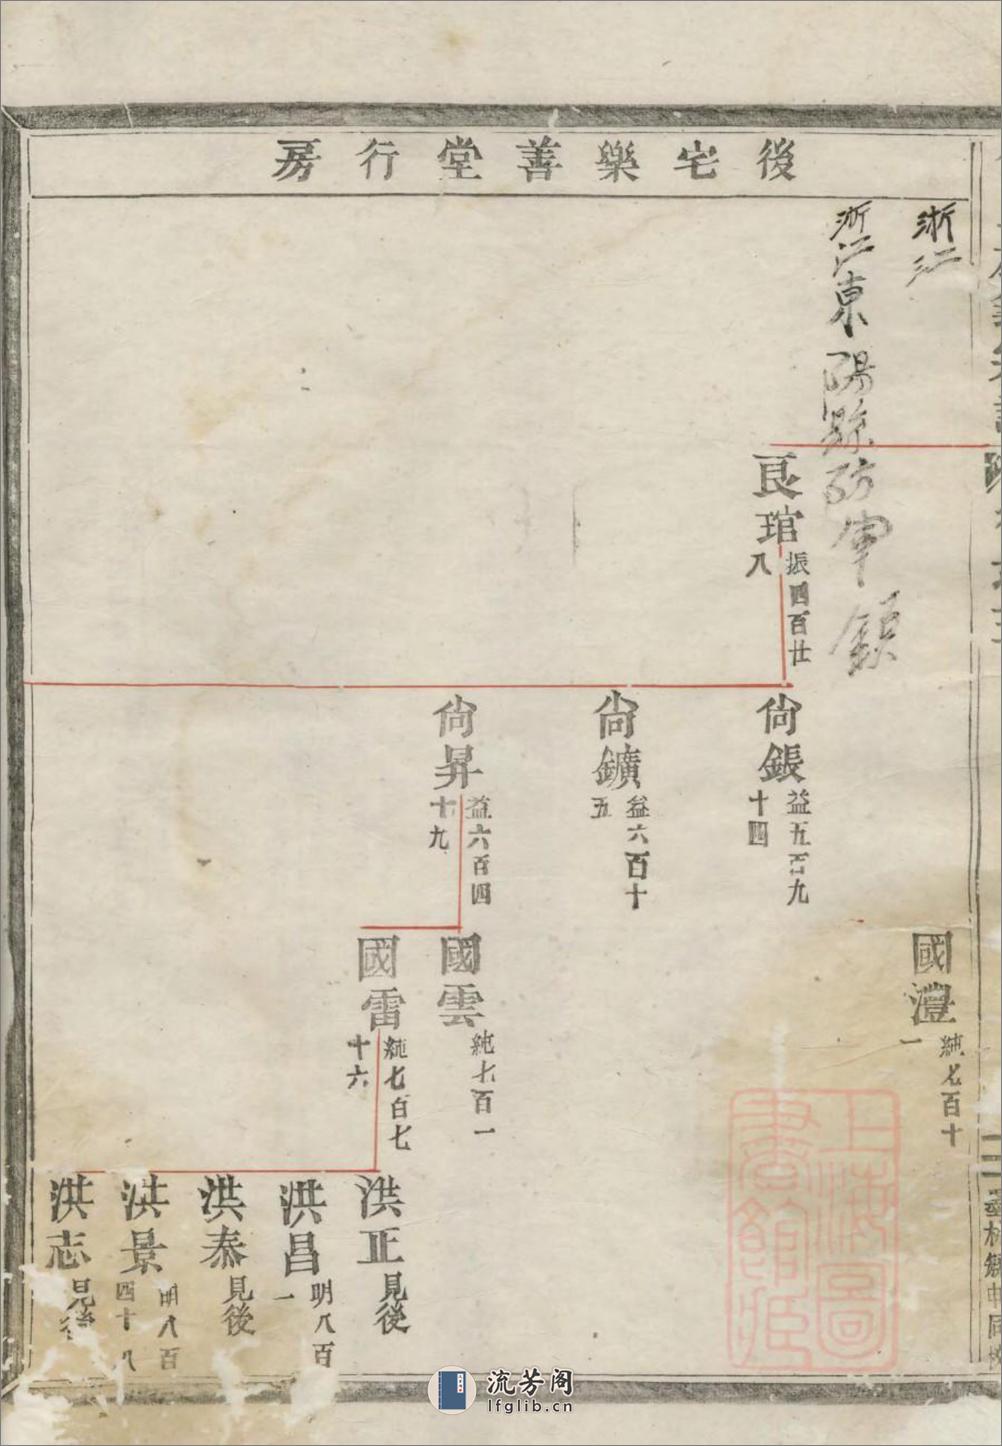 後宅樂善堂行房
浙江
浙江東陽縣防軍鎮
良琯 振四百廿八
尙鋹 益五百九十四
尙鑛 益六百十五
尙昇 益六百四十九
國灃 純七百十一
國雲 純七百一
國雷 純七百七十六
洪正 見後
洪昌 明八百一
洪泰 見後
洪景 明八百四十八
洪志 見後
上海圖書館藏
流芳阁
lfglib.cn